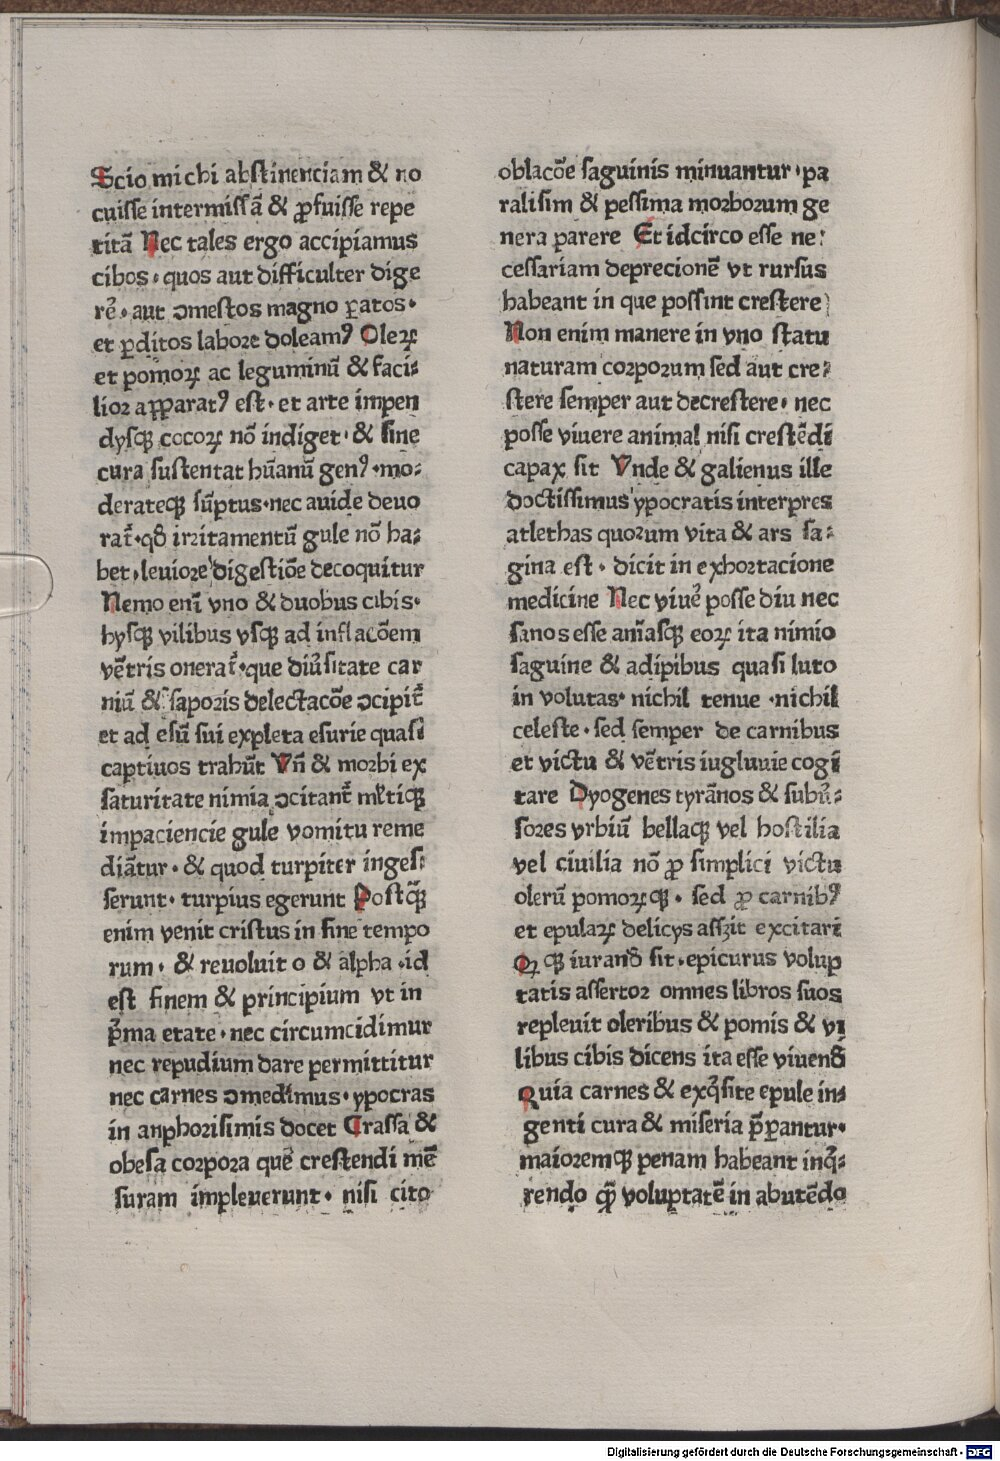 Scio michi abstinenciam & no
cuisse intermissā & ꝓfuisse repe
titā Nec tales ergo accipiamus
cibos · quos aut difficulter dige
rē · aut ↄmestos magno ꝑatos ·
et ꝑditos labore doleamꝰ Oleꝝ
et pomoꝝ ac leguminū & faci⸗
lior aꝑparatꝰ est · et arte impen
dysqꝫ cocoꝝ nō indiget · & sine
cura sustentat hūanū genꝰ · mo⸗
derateqꝫ sūptus · nec auide deuo
rat̄ · qđ irritamentū gule nō ha⸗
bet · leuiore digestiōe decoquitur
Nemo enī vno & duobus cibis ·
hysqꝫ vilibus vsqꝫ ad inflacōem
vētris onerat̄ · que diūsitate car
niū & saporis delectacōe ↄcipit̄
et ad esū sui expleta esurie quasi
captiuos trahūt Vñ & morbi ex
saturitate nimia ↄcitant̄ ml̄tiqꝫ
impaciencie gule vomitu reme
diātur · & quod turpiter inges⸗
serunt · turpius egerunt Postqꝫ̄
enim venit cristus in fine tempo
rum · & reuoluit o & alpha · id
est finem & principium vt in
p̄ma etate · nec circumcidimur
nec repudium dare permittitur
nec carnes ↄmedimus · ypocras
in anphorisimis docet Crassa &
obesa corpora quē crestendi mē
suram impleuerunt · nisi cito
oblacōe saguinis minuantur · pa
ralisim & pessima morborum ge
nera parere Et idcirco esse ne⸗
cessariam deprecionē vt rursus
habeant in que possint crestere
Non enim manere in vno statu
naturam corporum sed aut cre⸗
stere semper aut decrestere · nec
posse viuere animal nisi crestēdi
capax sit Vnde & galienus ille
doctissimus ypocratis interpres
atlethas quorum vita & ars sa⸗
gina est · dicit in exhortacione
medicine Nec viuē posse diu nec
sanos esse aniāsqꝫ eoꝝ ita nimio
saguine & adipibus quasi luto
in volutas · nichil tenue · nichil
celeste · sed semper de carnibus
et victu & vētris iugluuie cogī
tare Dyogenes tyrānos & subū⸗
sores vrbiū bellaqꝫ vel hostilia
vel ciuilia nō ꝓ simplici victu
olerū pomoꝝqꝫ · sed ꝓ carnibꝰ
et epulaꝝ delicys asszit excitari
Qꝝ qꝫ iuranđ sit · epicurus volup
tatis assertor omnes libros suos
repleuit oleribus & pomis & vi
libus cibis dicens ita esse viuenđ
Quia carnes & exq̄site epule in⸗
genti cura & miseria p̄ꝑantur ·
maioremqꝫ penam habeant inq̄⸗
rendo qꝫ̄ voluptatē in abutēdo
Digitalisierung gefördert durch die Deutsche Forschungsgemeinschaft - DFG